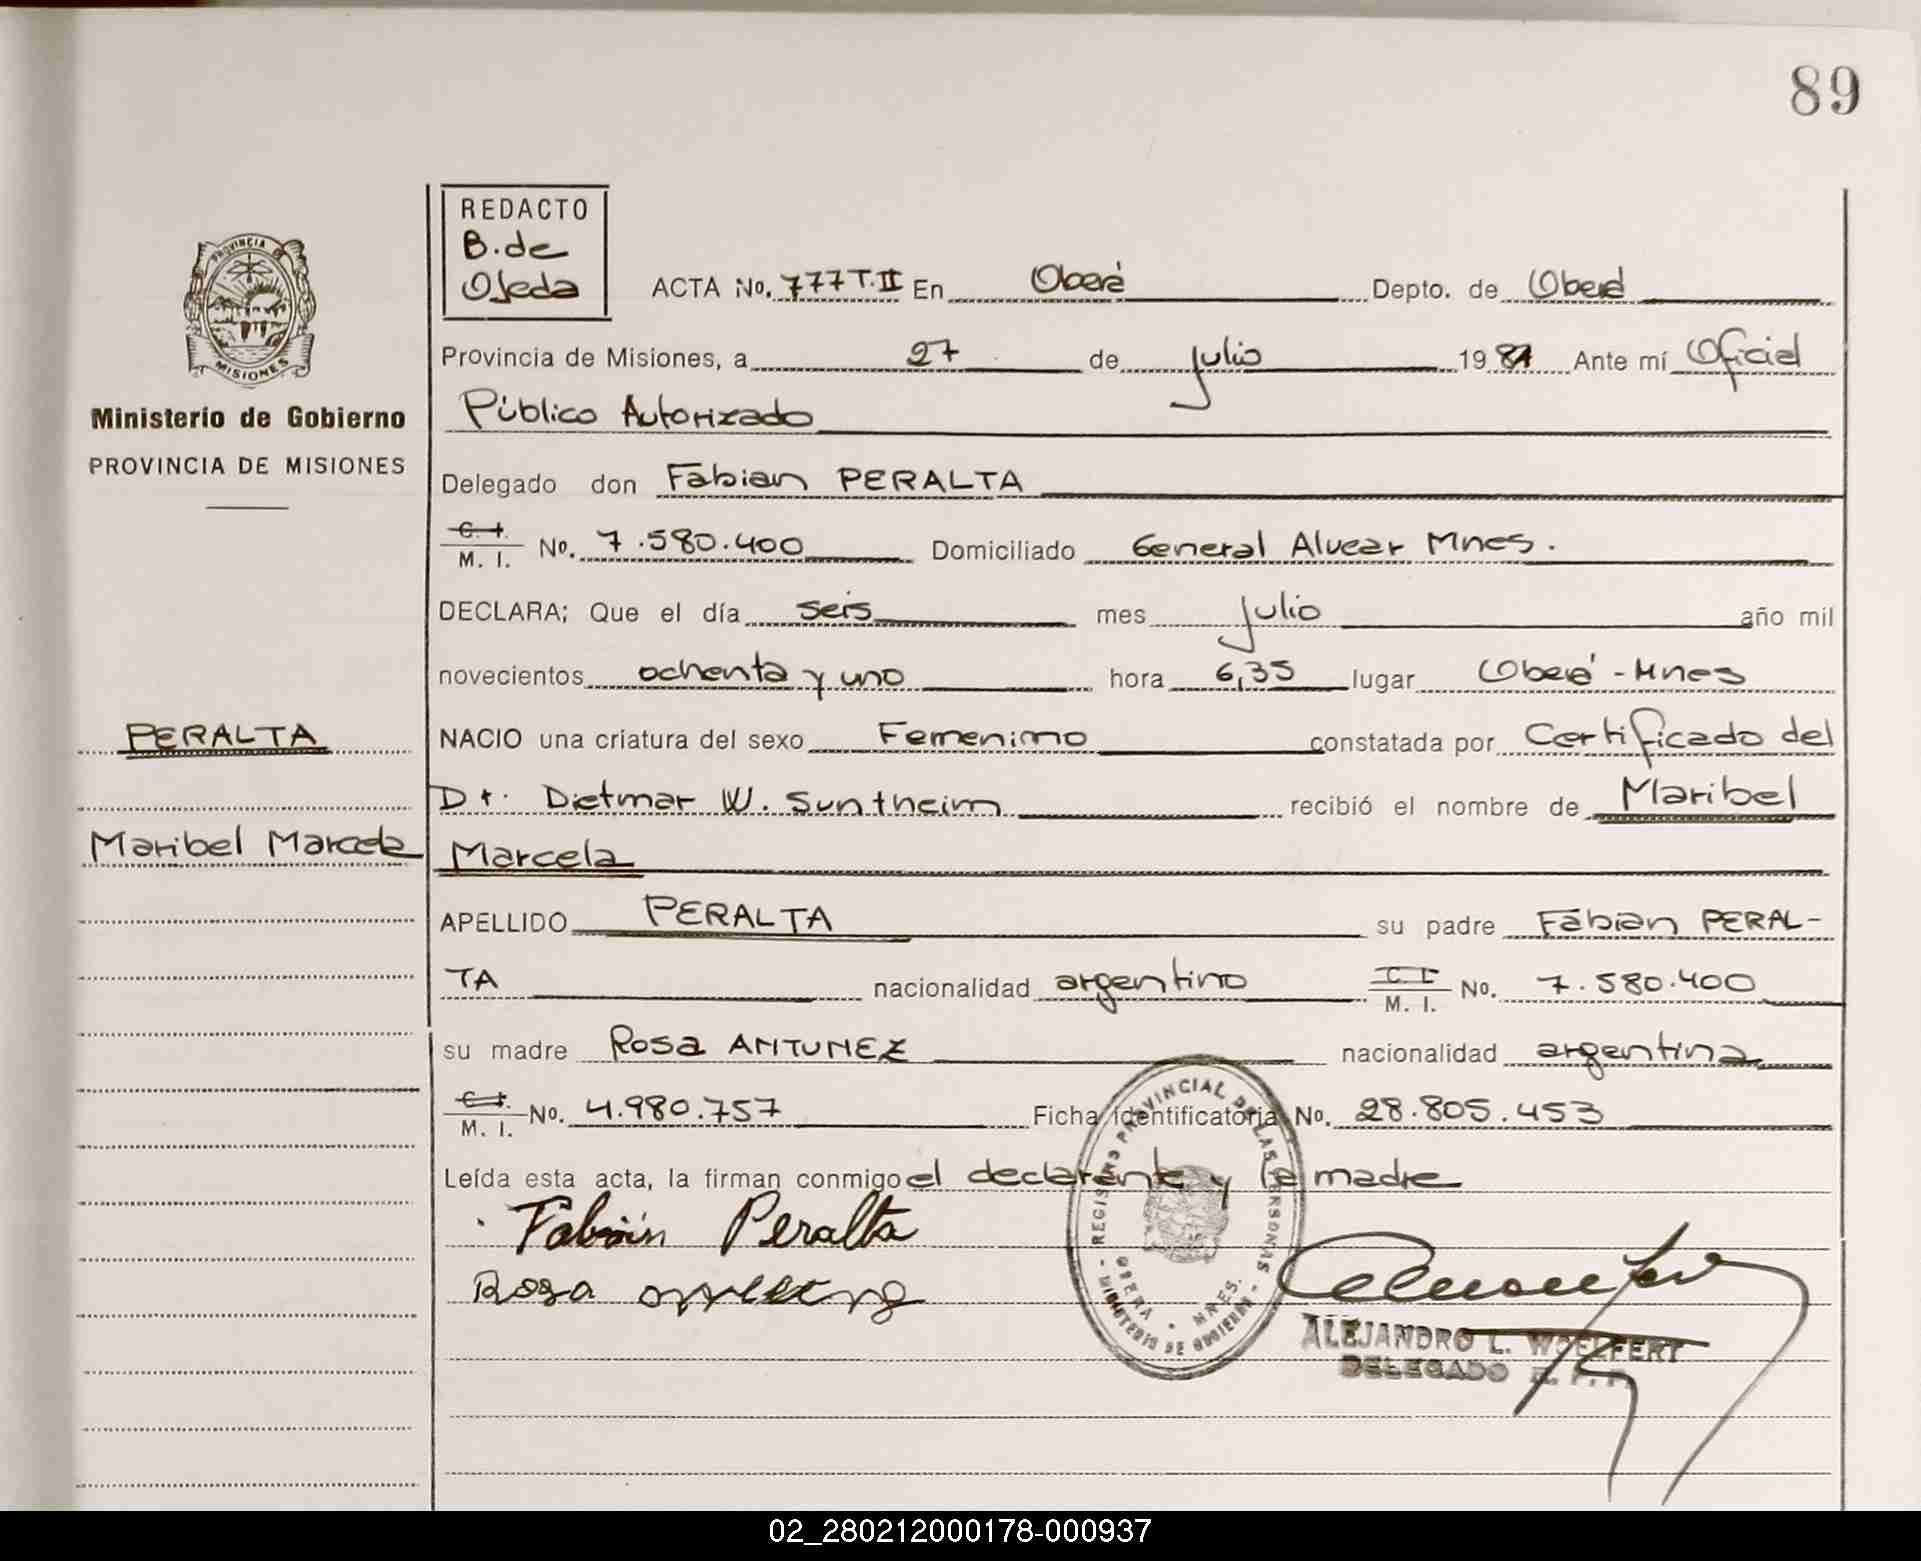 89
REDACTO
B. de
Ojeda
ACTA No. 777 T.II En Oberá Depto. de Oberá
PROVINCIA
MISIONES
Provincia de Misiones, a 27 de julio 1981 Ante mí Oficial
Ministerio de Gobierno
Público Autorizado
PROVINCIA DE MISIONES
Delegado don Fabian PERALTA
C. I.
M. I. No. 7.580.400 Domiciliado General Alvear Mnes.
DECLARA; Que el día seis mes julio año mil
novecientos ochenta y uno hora 6,35 lugar Oberá - Mnes
PERALTA
NACIO una criatura del sexo Femenino constatada por Certificado del
Dr. Dietmar W. Suntheim recibió el nombre de Maribel
Maribel Marcela
Marcela
APELLIDO PERALTA su padre Fabian PERAL-
TA nacionalidad argentino C I
M. I. No. 7.580.400
su madre Rosa ANTUNEZ nacionalidad argentina
C. I.
M. I. No. 4.980.757 Ficha identificatoria No. 28.805.453
Leída esta acta, la firman conmigo el declarante y la madre
Fabián Peralta
Rosa
REGISTRO PROVINCIAL DE LAS PERSONAS - MINISTERIO DE GOBIERNO -
OBERA - MNES.
ALEJANDRO L. WOELFERT
DELEGADO R. P. P.
02_280212000178-000937